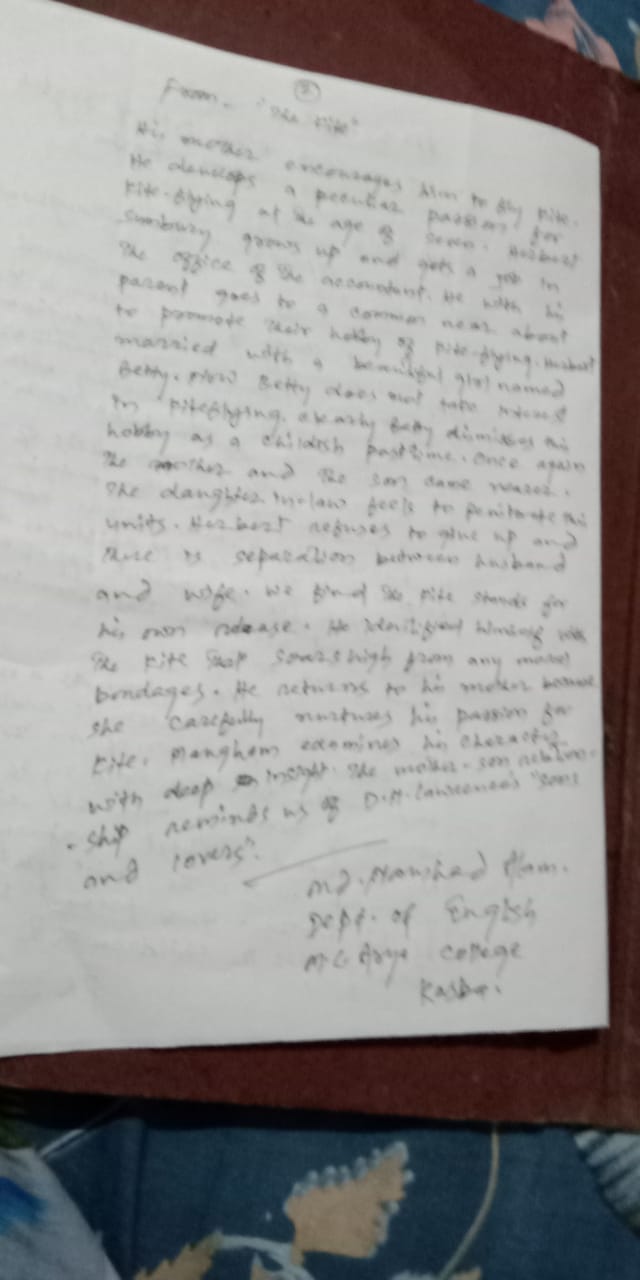 ②
From - "The Kite"
His mother encourages him to fly kite.
He develops a peculiar passion for
kite-flying at the age of seven. Herbert
Sunbury grows up and gets a job in
the office of the accountant. He with his
parent goes to a common near about
to promote their hobby of kite-flying. Herbert
married with a beautiful girl named
Betty. Now Betty does not take interest
in kiteflying. clearly Betty dismisses this
hobby as a childish pastime. Once again
the mother and the son came nearer.
The daughter-in-law feels to penitrate this
units. Herbert refuses to give up and
there is separation between husband
and wife. we find the kite stands for
his own release. He identified himself with
the kite that soars high from any
bondages. He returns to his mother because
she carefully nurtures his passion for
kite. Maugham examines his character
with deep insight. The mother-son relation-
ship reminds us of D.H. Lawrence's "Sons
and lovers".
Md. Alam.
Dept. of English
M.L Arya College
Kasba.